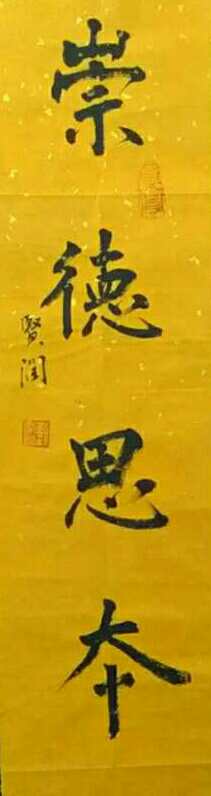 崇德思本
賢闰